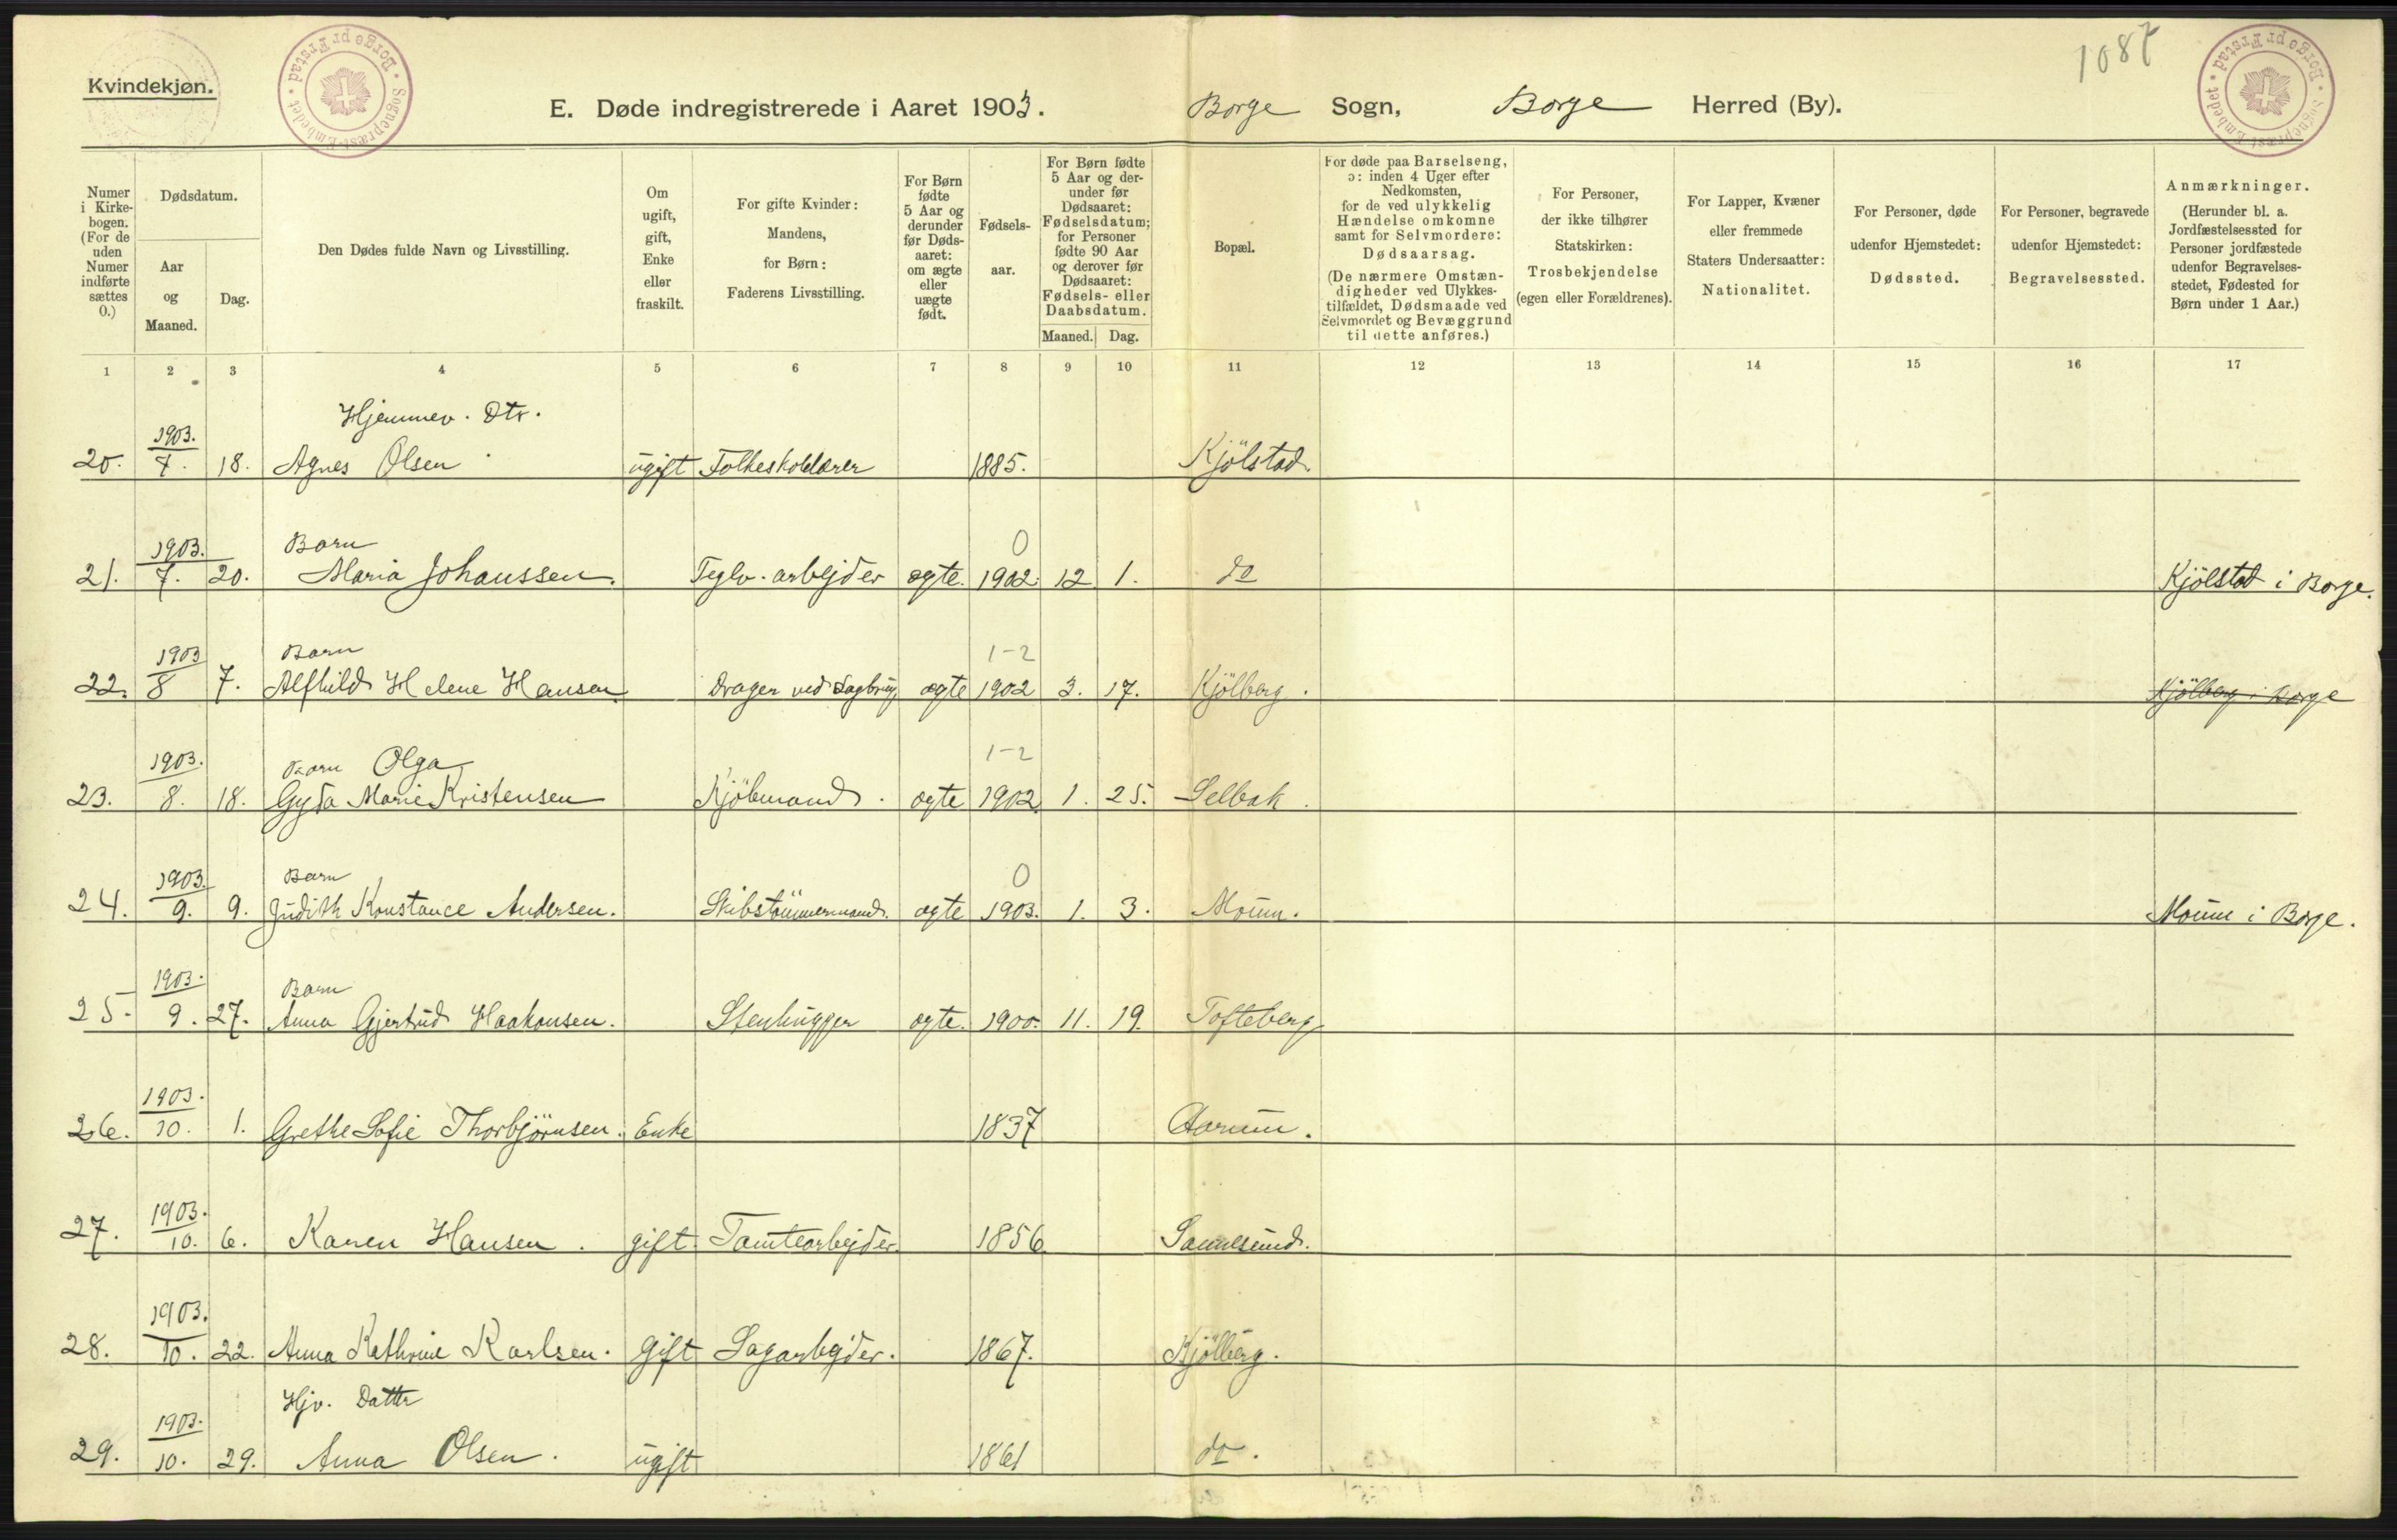 1087
Borge pr Frstad • Sognepræst-Embedet •
Borge pr Frstad • Sognepræst-Embedet •
Kvindekjøn.
E. Døde indregistrerede i Aaret 1903. Borge Sogn, Borge Herred (By).
Numer i Kirkebogen. (For de uden Numer indførte sættes 0.)
Dødsdatum.
Aar og Maaned.
Dag.
Den Dødes fulde Navn og Livsstilling.
Om ugift, gift, Enke eller fraskilt.
For gifte Kvinder: Mandens, for Børn: Faderens Livsstilling.
For Børn fødte 5 Aar og derunder før Dødsaaret: om ægte eller uægte født.
Fødselsaar.
For Børn fødte 5 Aar og derunder før Dødsaaret: Fødselsdatum; for Personer fødte 90 Aar og derover før Dødsaaret: Fødsels- eller Daabsdatum.
Maaned. Dag.
Bopæl.
For døde paa Barselseng, ɔ: inden 4 Uger efter Nedkomsten, for de ved ulykkelig Hændelse omkomne samt for Selvmordere: Dødsaarsag. (De nærmere Omstændigheder ved Ulykkestilfældet, Dødsmaade ved Selvmordet og Bevæggrund til dette anføres.)
For Personer, der ikke tilhører Statskirken: Trosbekjendelse (egen eller Forældrenes).
For Lapper, Kvæner eller fremmede Staters Undersaatter: Nationalitet.
For Personer, døde udenfor Hjemstedet: Dødssted.
For Personer, begravede udenfor Hjemstedet: Begravelsessted.
Anmærkninger. (Herunder bl. a. Jordfæstelsessted for Personer jordfæstede udenfor Begravelsesstedet, Fødested for Børn under 1 Aar.)
1 2 3 4 5 6 7 8 9 10 11 12 13 14 15 16 17
Hjemmev. Dtr.
20. 1903. 7. 18. Agnes Olsen ugift Folkeskolelærer 1885. Kjölstad.
Barn 0
21. 1903. 7. 20. Maria Johanssen. Teglv. arbejder ægte. 1902 12 1. do Kjölstad i Borge.
Barn 1-2
22. 1903 8 7. Alfhild Helene Hansen Drager ved Sagbrug ægte 1902 3. 17. Kjölberg. Kjölberg i Borge
Barn Olga 1-2
23. 1903. 8. 18. Gyda Marie Kristensen Kjöbmand. ægte 1902 1. 25. Selbak.
Barn 0
24. 1903. 9. 9. Judith Konstance Andersen. Skibstömmermand. ægte 1903. 1. 3. Moum. Moum i Borge.
Barn
25. 1903. 9. 27. Anna Gjertrud Haakonsen. Stenhugger ægte. 1900. 11. 19. Tofteberg
26. 1903. 10. 1. Grethe Sofie Thorbjörnsen. Enke 1837 Aarum.
27. 1903. 10. 6. Karen Hansen. gift. Tomtearbejder. 1856 Sannesund.
28. 1903. 10. 22. Anna Kathrine Karlsen. Gift Sagarbejder. 1867. Kjölberg.
Hjv. Datter
29. 1903. 10. 29. Anna Olsen. ugift 1861 do.